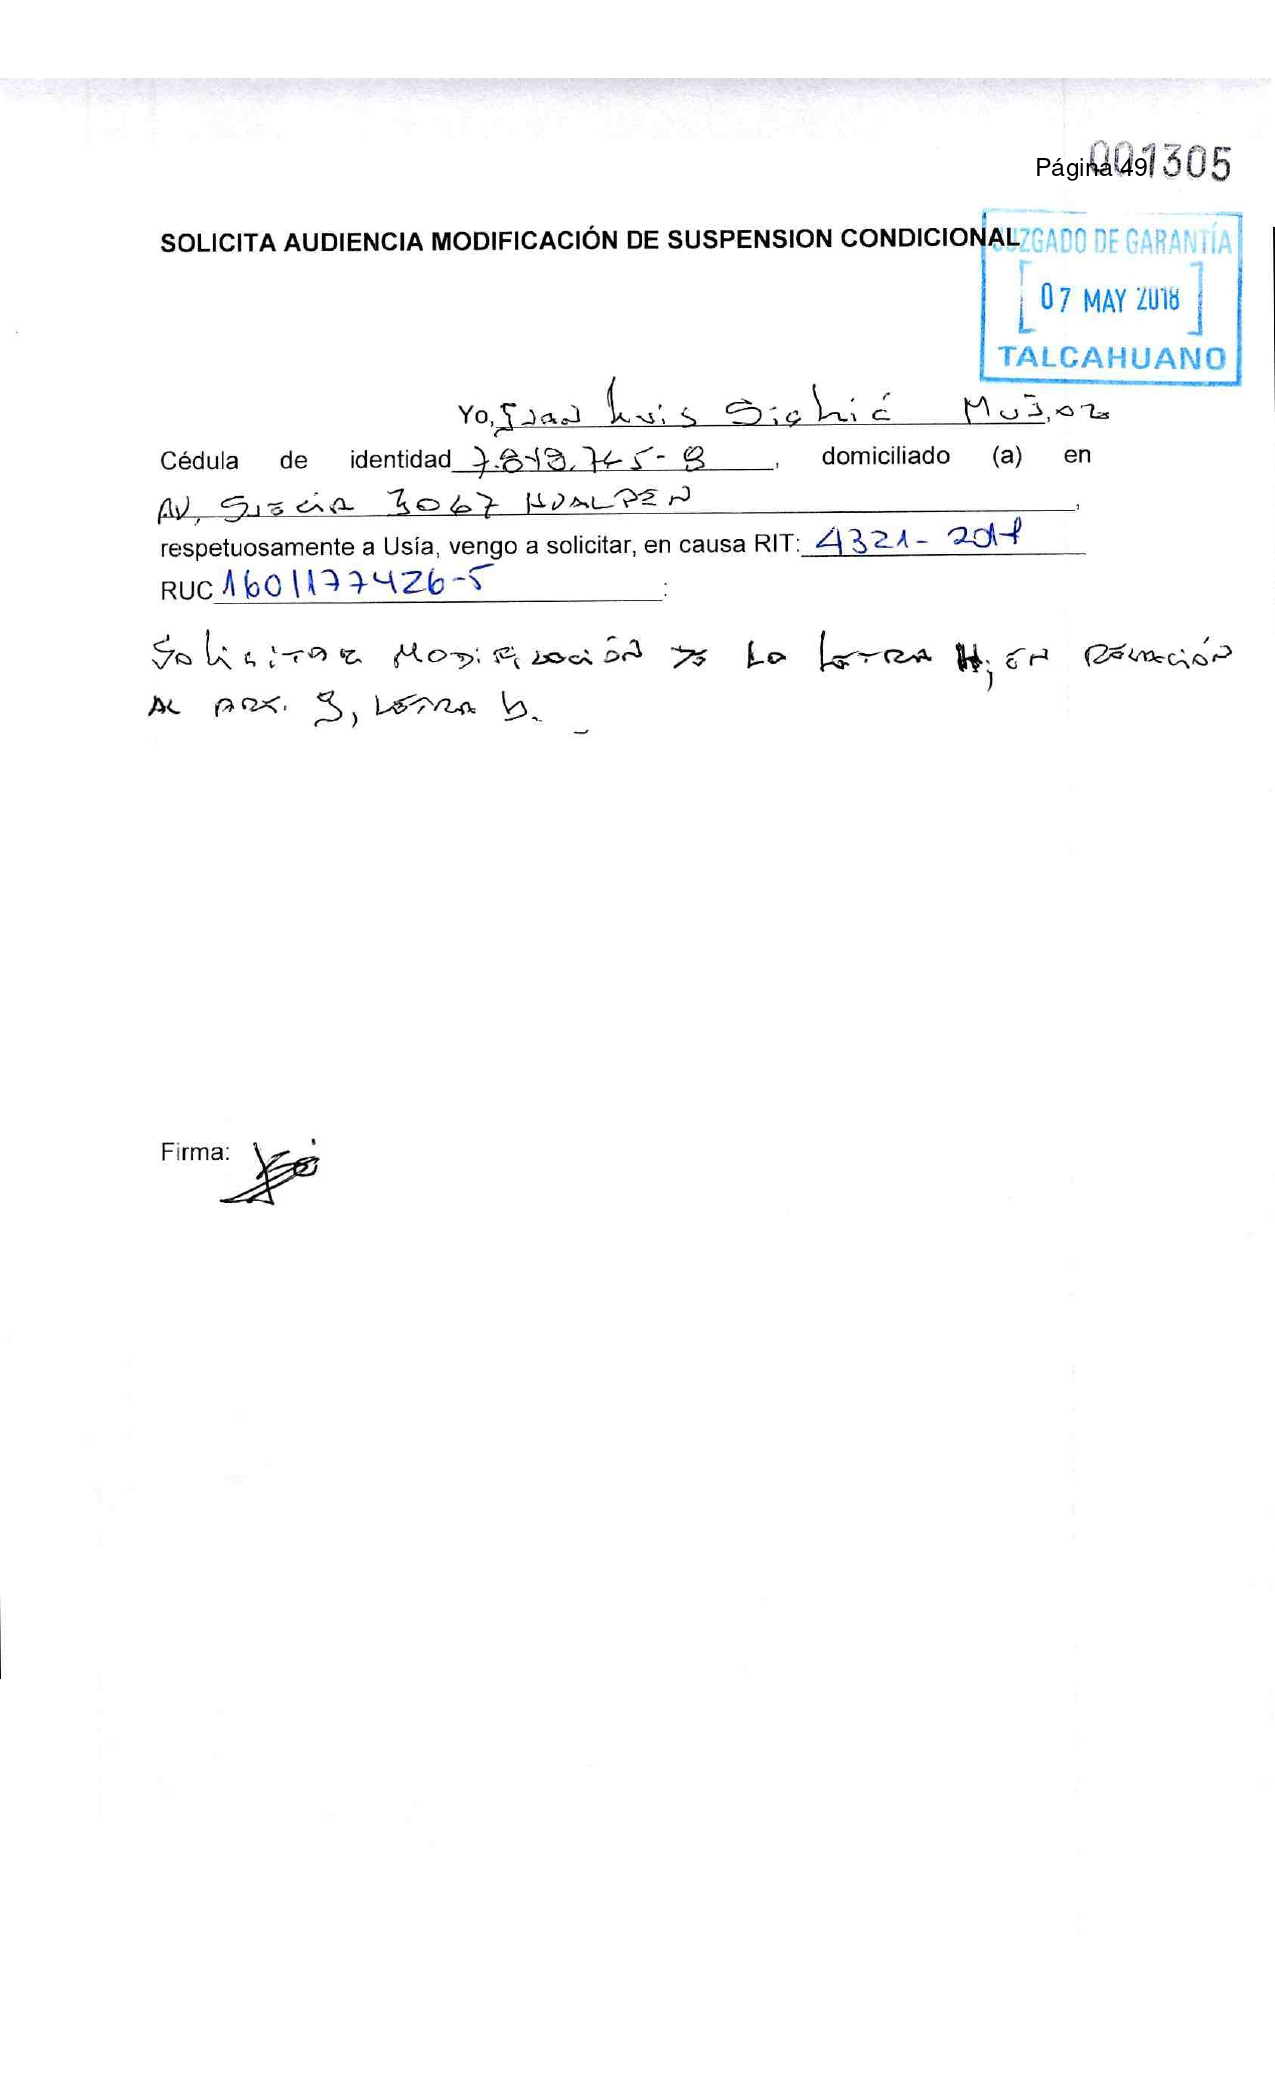 001305
Página 49
SOLICITA AUDIENCIA MODIFICACIÓN DE SUSPENSION CONDICIONAL
JUZGADO DE GARANTÍA
07 MAY 2018
TALCAHUANO
Yo, Juan Luis Muñoz
Cédula de identidad , domiciliado (a) en
AV, SUECIA 3067 HUALPEN,
respetuosamente a Usía, vengo a solicitar, en causa RIT: 4321-2017
RUC 1601177426-5:
Solicitar Modificación De La Letra H; en Relación
AL ART. 9, LETRA b.
Firma: